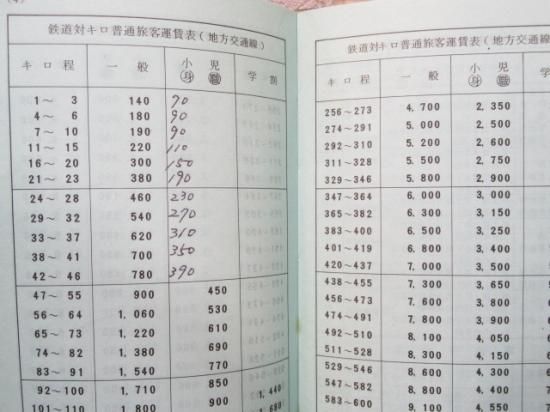 鉄道対キロ普通旅客運賃表(地方交通線)
キロ程 一般 小児 身 職 学割
1～ 3 140 70
4～ 6 180 90
7～ 10 190 90
11～ 15 220 110
16～ 20 300 150
21～ 23 380 190
24～ 28 460 230
29～ 32 540 270
33～ 37 620 310
38～ 41 700 350
42～ 46 780 390
47～ 55 900 450
56～ 64 1,060 530
65～ 73 1,220 610
74～ 82 1,380 690
83～ 91 1,540 770
92～100 1,710 850 1,440
101～110 1,980 900
鉄道対キロ普通旅客運賃表(地方交通線)
キロ程 一般 小児 身 職
256～273 4,700 2,350
274～291 5,000 2,500
292～310 5,200 2,600
311～328 5,500 2,750
329～346 5,800 2,900
347～364 6,000 3,000
365～382 6,300 3,150
383～400 6,500 3,250
401～419 6,800 3,400
420～437 7,000 3,500
438～455 7,300 3,650
456～473 7,600 3,800
474～491 7,800 3,900
492～510 8,100 4,050
511～528 8,300 4,150
529～546 8,600
547～582 8,800
583～600 9,100